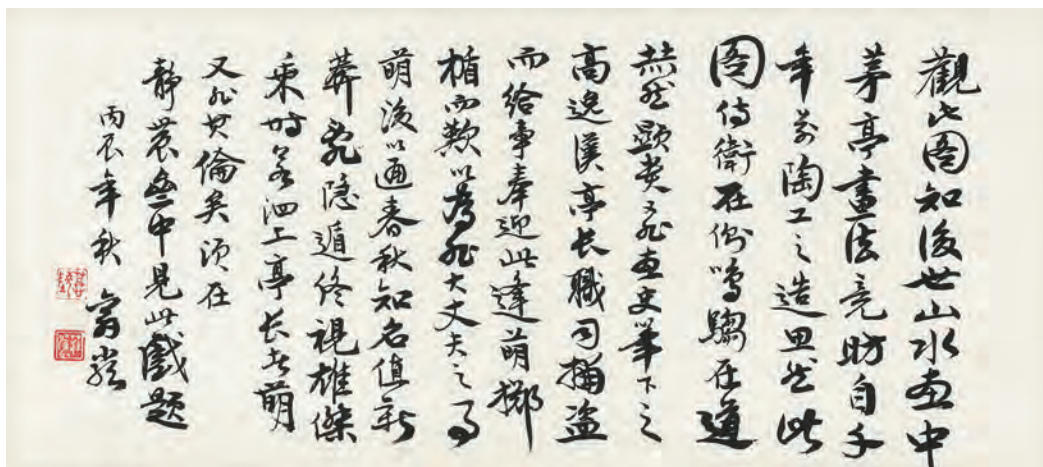 觀此圖知後世山水画中
茅亭畫法竟昉自千
年前陶工之造思然此
圖侍衛在側鳴騶在道
赫然顯貴又非画史筆下之
高逸漢亭長職司捕盗
而給事奉迎此逢萌擲
楯而歎以為非大丈夫之事
萌後以通春秋知名值新
莽亂隱遁終視雄傑
乘時若泗上亭長者萌
又非其倫矣頃在
靜農盦中見此戲題
丙辰年秋